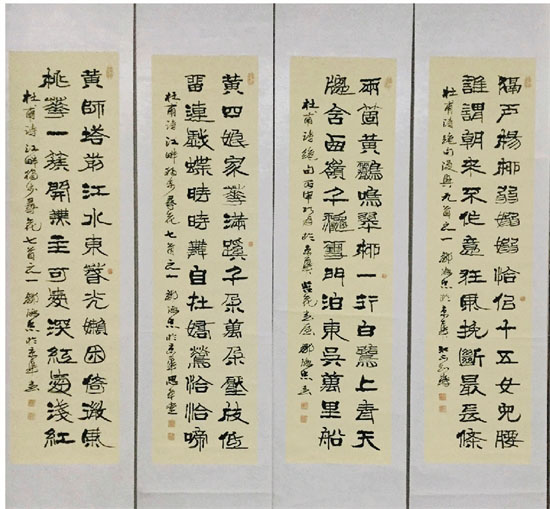 隔戶楊柳弱嫋嫋恰似十五女兒腰
誰謂朝來不作意狂風挽斷最長條
杜甫詩絕句漫興九首之一 於京華
兩箇黃鸝鳴翠柳一行白鷺上青天
牕含西嶺千秋雪門泊東吳萬里船
杜甫詩絕句丙申 於京華
黃四娘家華滿蹊千朵萬朵壓枝低
留連戲蝶時時舞自在嬌鶯恰恰啼
杜甫詩江畔獨步尋花七首之一 於京華
黃師塔前江水東春光懶困倚微風
桃華一簇開無主可愛深紅愛淺紅
杜甫詩江畔獨步尋花七首之一 於京華